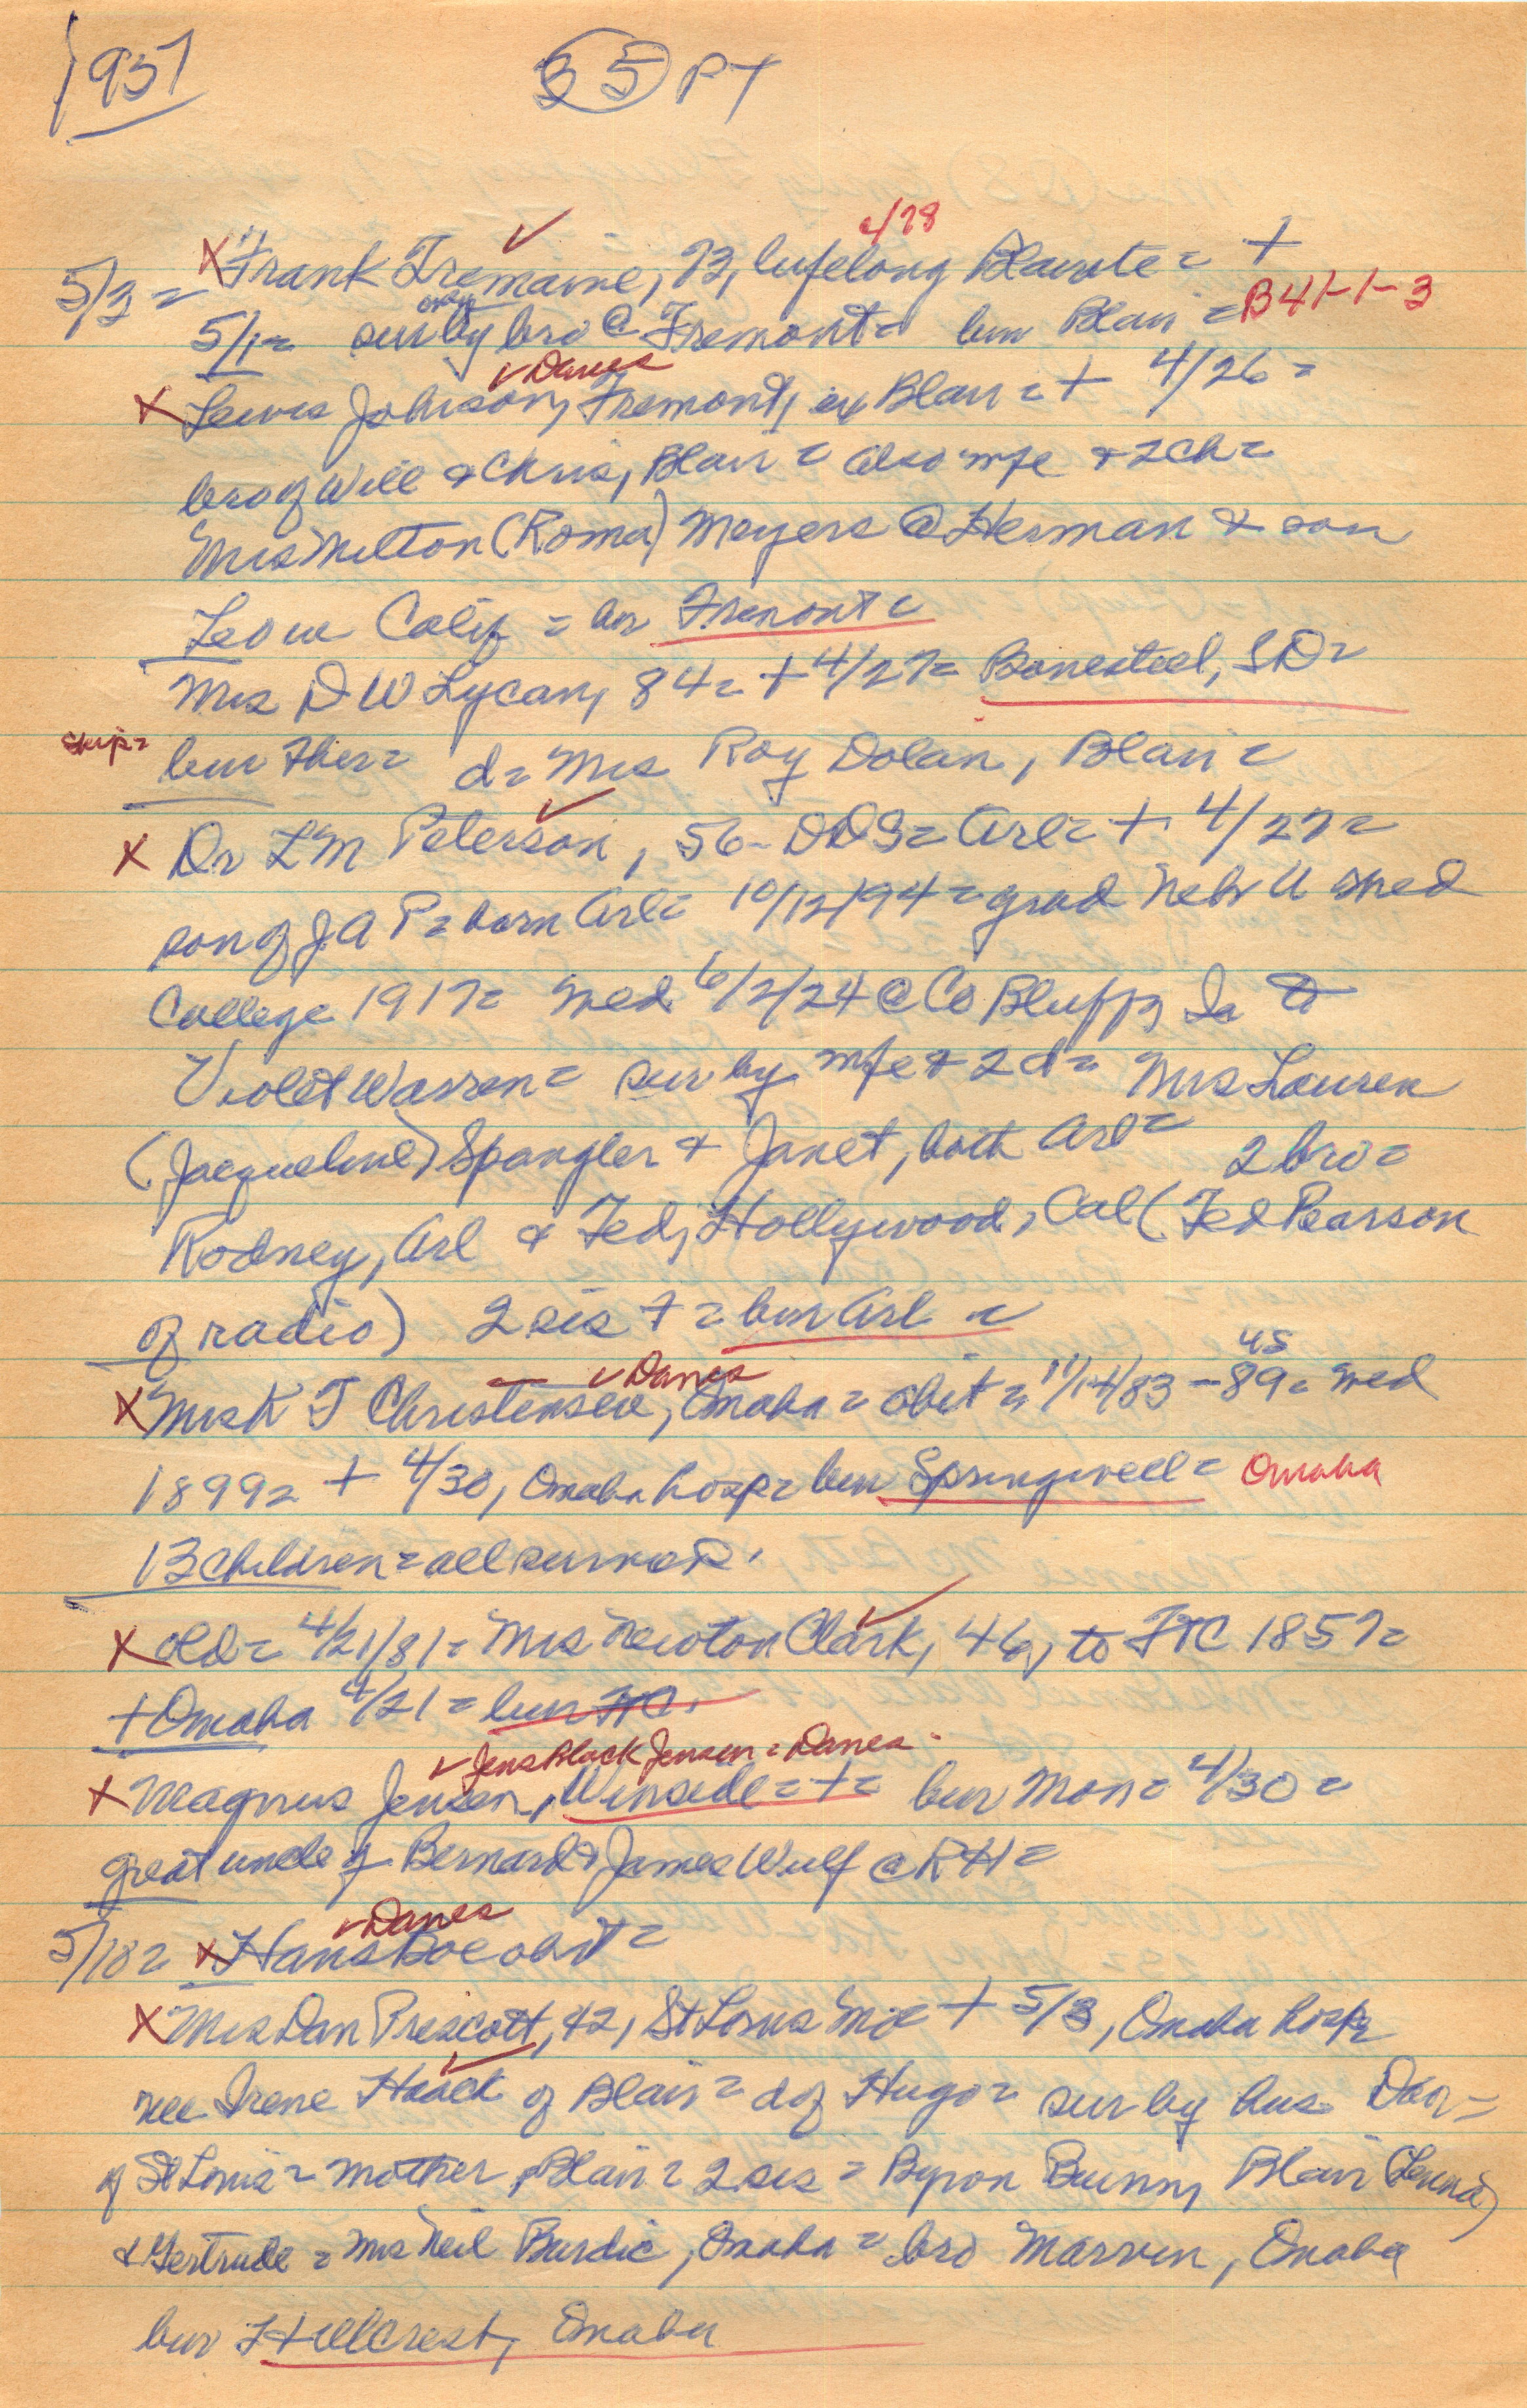 1951
35 PT
4/78
5/3 = X Frank Tremaine, 73, lifelong Blairite = +
5/1 = sur by only bro @ Fremont = bur Blair = B41-1-3
✓ Danes
X Lewis Johnson, Fremont, ex Blair = + 4/26 =
bro of Will & Chris, Blair = also wife & 2 ch =
Mrs Milton (Roma) Meyers @ Herman & son
Leo in Calif = bur Fremont =
Mrs D W Lycan, 84 = + 4/27 = Bonesteel, SD =
skip = bur there = d = Mrs Roy Dolan, Blair =
X Dr L M Peterson, 56 - DDS = Arl = + 4/27 =
son of J A P = born Arl = 10/12/94 = grad Nebr U Med
College 1917 = med 6/2/24 @ Co Bluffs, Ia to
Violet Warren = sur by wife & 2 d = Mrs Lauren
(Jacqueline) Spangler & Janet, both Arl = 2 bro =
Rodney, Arl & Ted, Hollywood, Cal (Ted Pearson
of radio) 2 sis + = bur Arl =
✓ Danes 45
X Mrs K T Christensen, Omaha = obit = 11/14/83 - 89 = med
1899 = + 4/30, Omaha hosp = bur Springwell = Omaha
13 children = all survived.
X Old = 4/21/81 = Mrs Newton Clark, 46, to FTC 1857 =
+ Omaha 4/21 = bur FTC.
✓ Jens Block Jensen = Danes
X Magnus Jensen, Winside = + = bur Mon = 4/30 =
great uncle of Bernard & James Wulf @ RH =
✓ Danes
5/18 = X Hans Boe obit =
X Mrs Dan Prescott, 42, St Louis Mo = + 5/3, Omaha hosp =
nee Irene Haack of Blair = d of Hugo = sur by hus Dan =
of St Louis = mother, Blair = 2 sis = Byron Bunn, Blair (Leuna)
& Gertrude = Mrs Neil Burdic, Omaha = bro Marvin, Omaha
bur Hillcrest, Omaha